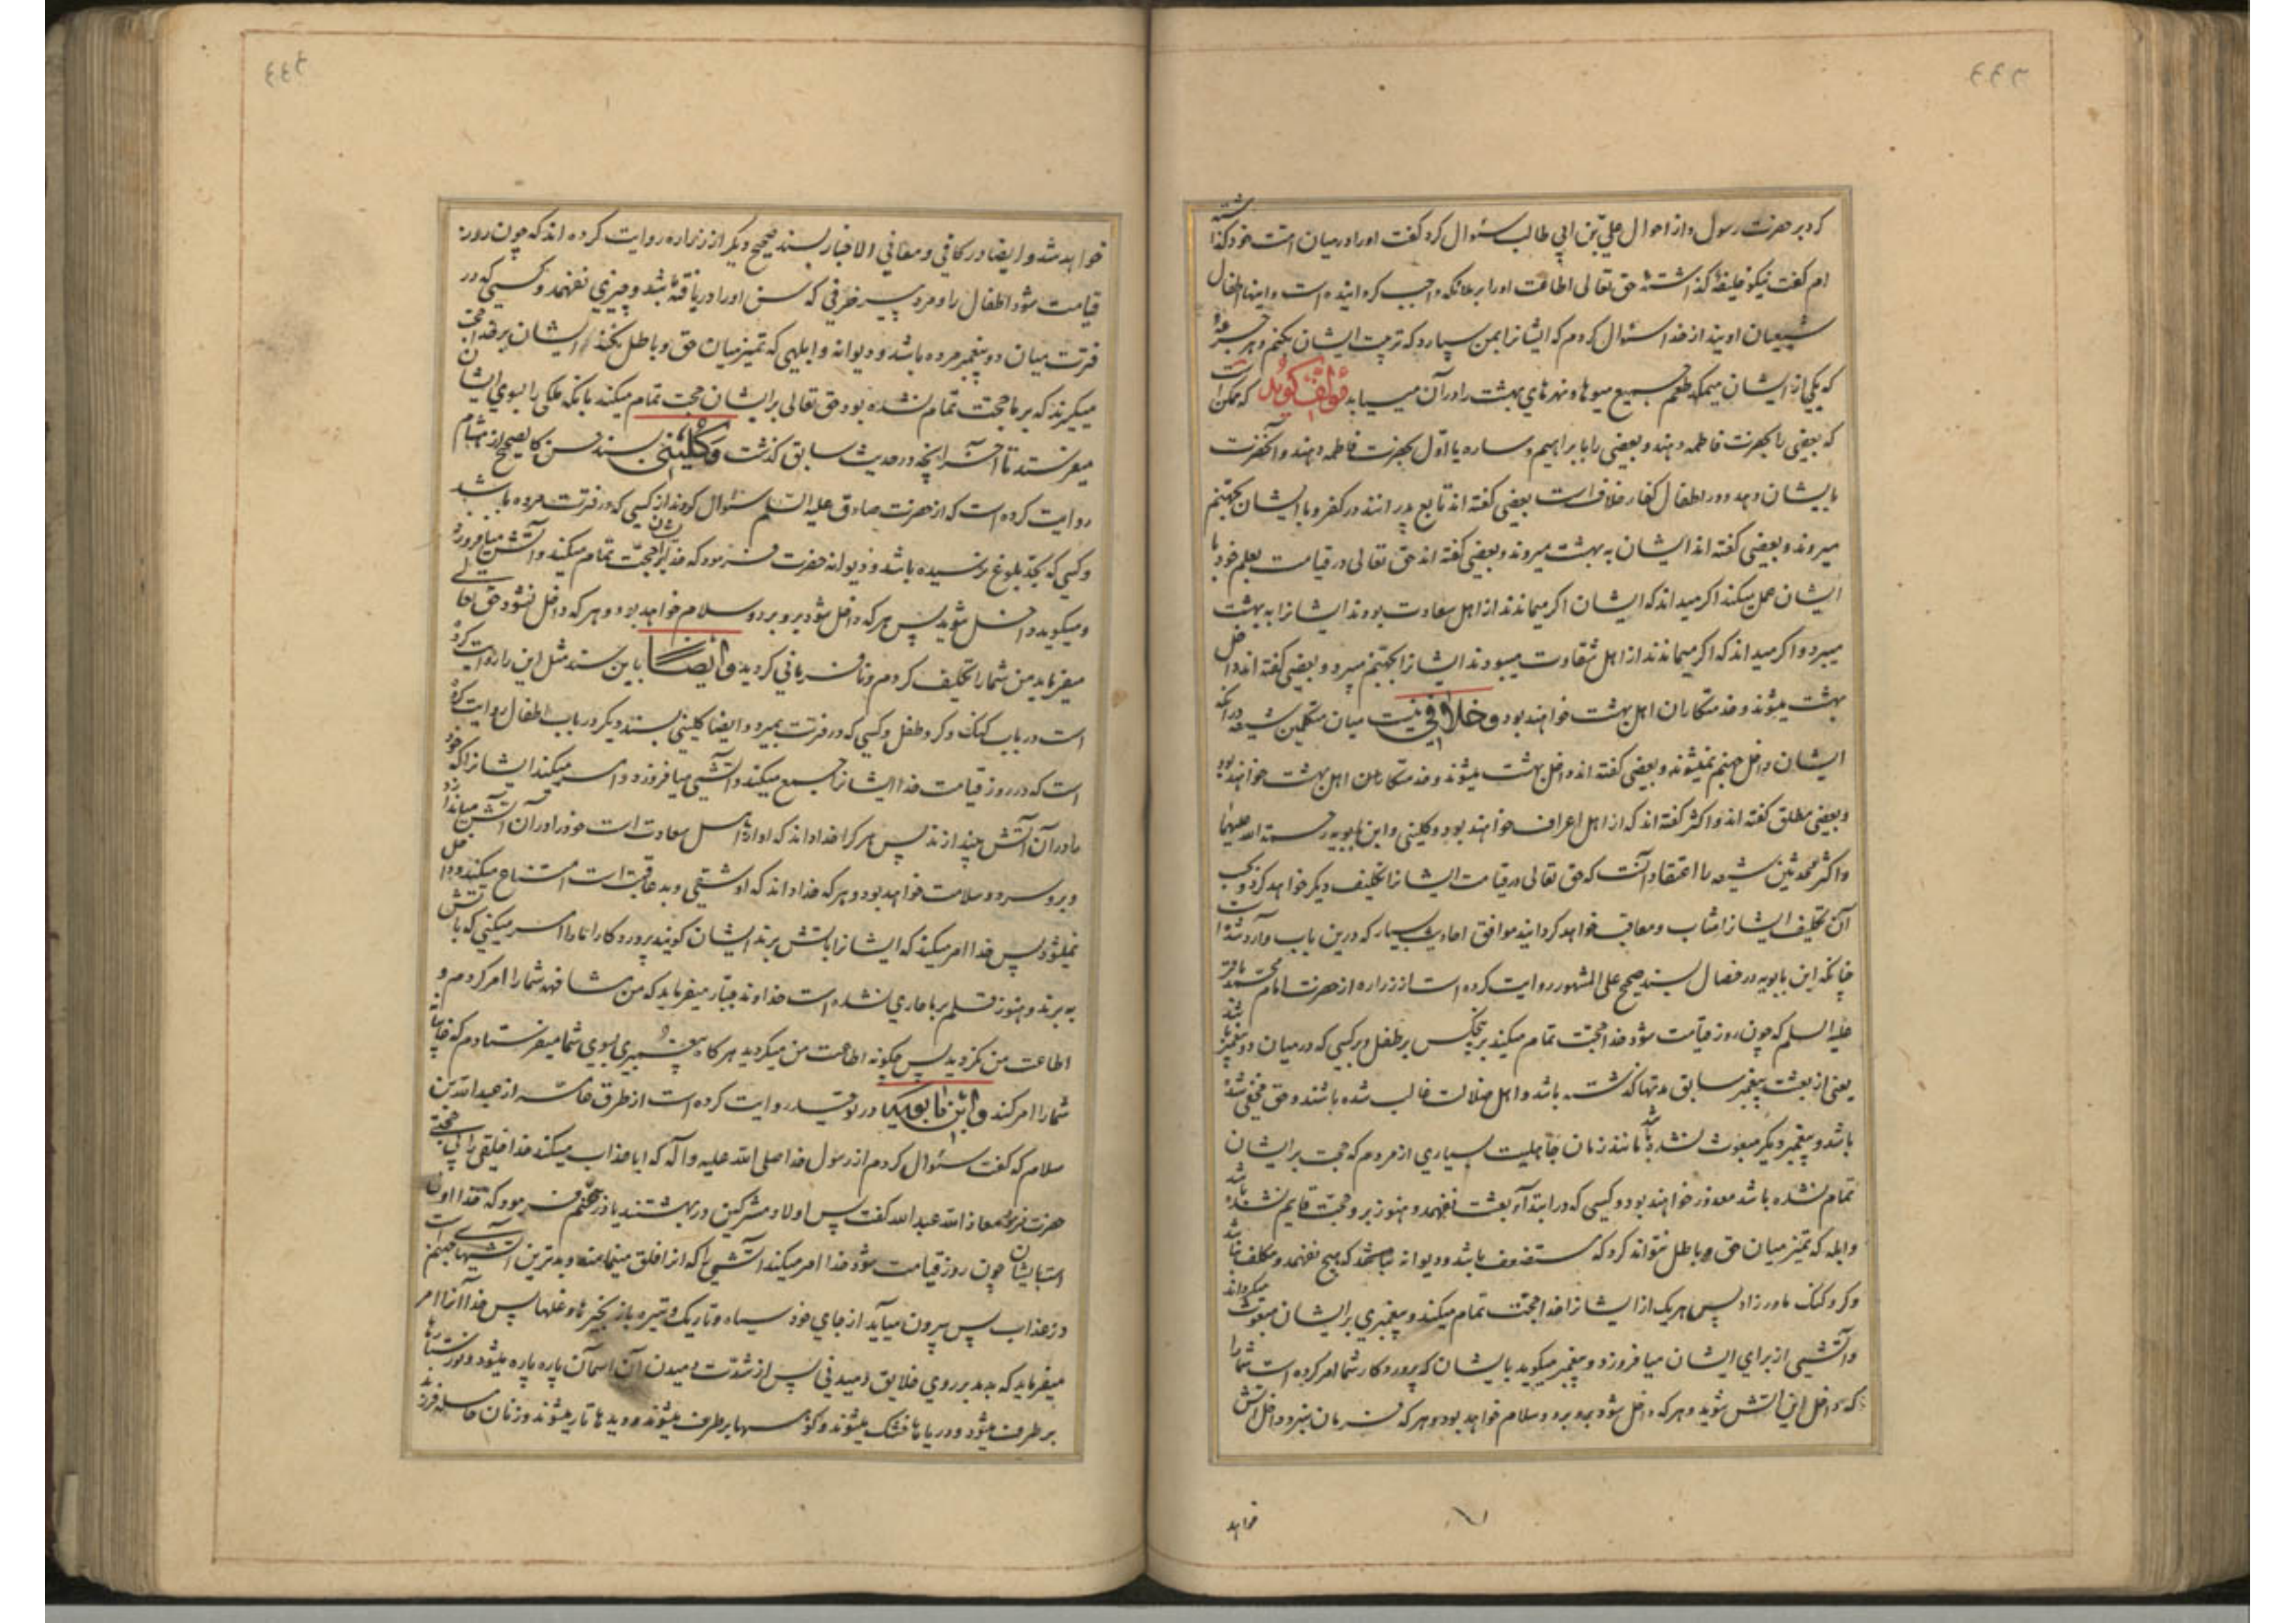 ۴۴۳
کرد بر حضرت رسول و از احوال علی بن ابی طالب سئوال کرد گفت اورا درمیان امت خود گذاشته
ام گفت نیکو خلیفهٔ گذاشتهٔ حق تعالی اطاعت اورا بر ملائکه واجب کردانیده است و اینها اطفال
شیعیان اویند از خدا سئوال کردم که ایشانرا بمن سپارد که تربیت ایشان بکنم و هر جرعهٔ
که یکی از ایشان میمکد طعم جمیع میوها و نهرهای بهشت را در آن مییابد مؤلف گوید که ممکن است
که بعضی را بحضرت فاطمه دهند و بعضی را بابراهیم و ساره یا اول بحضرت فاطمه دهند و آنحضرت
بایشان دهد و در اطفال کفار خلافست بعضی گفته اند تابع پدرانند در کفر و با ایشان بجهنم
میروند و بعضی گفته اند ایشان به بهشت میروند و بعضی گفته اند حق تعالی در قیامت بعلم خود با
ایشان عمل میکند اگر میداند که ایشان اگر میماندند از اهل سعادت بودند ایشانرا به بهشت
میبرد و اگر میداند که اگر میماندند از اهل شقاوت میبودند ایشانرا بجهنم میبرد و بعضی گفته اند داخل
بهشت میشوند و خدمتکاران اهل بهشت خواهند بود و خلافی نیست میان متکلمین شیعه در آنکه
ایشان داخل جهنم نمیشوند و بعضی گفته اند داخل بهشت میشوند و خدمتکاران اهل بهشت خواهند بود
و بعضی مطلق گفته اند و اکثر گفته اند که از اهل اعراف خواهند بود و کلینی و ابن بابویه رحمة الله علیهما
و اکثر محدثین شیعه را اعتقاد آنست که حق تعالی در قیامت ایشانرا تکلیف دیگر خواهد کرد و بحسب
آن تکلیف ایشانرا مثاب و معاقب خواهد کردانید موافق احادیث بسیار که درین باب وارد شده است
چنانکه ابن بابویه در خصال بسند صحیح علی المشهور روایت کرده است از زراره از حضرت امام محمد باقر
علیه السلم که چون روز قیامت شود خدا حجت تمام میکند بر پنجکس بر طفل و بر کسی که در میان دو پیغمبر باشد
یعنی از بعثت پیغمبر سابق مدتها گذشته باشد و اهل ضلالت غالب شده باشند و حق مخفی شده
باشد و پیغمبر دیگر مبعوث نشده باشد مانند زمان جاهلیت بسیاری از مردم که حجت بر ایشان
تمام نشده باشد معذور خواهند بود و کسی که در ابتدا بعثت نفهمد و هنوز بر او حجت قایم نشده باشد
و ابله که تمیز میان حق و باطل نتواند کرد که مستضعف باشد و دیوانه که هیچ نفهمد و مکلف نباشد
و کر و کنک مادرزاد پس هریک از ایشانرا خدا حجت تمام میکند و پیغمبری بر ایشان مبعوث میکرداند
و آتشی از برای ایشان میافروزد و پیغمبر میکوید بایشان که پروردکار شما امر کرده است شما را
که داخل این آتش شوید و هر که داخل شود برو برد و سلام خواهد بود و هر که فرمان نبرد داخل آتش
خواهد
خواهد شد و ایضا در کافی و معانی الاخبار بسند صحیح دیکر از زراره روایت کرده اند که چون روز
قیامت شود اطفال را و مرد پیر خرفی که سن اورا دریافته باشد و چیزی نفهمد و کسی که در
فترت میان دو پیغمبر مرده باشد و دیوانه و ابلهی که تمیز میان حق و باطل نکند ایشان بر خدا حجت
میگیرند که بر ما حجت تمام نشده بود حق تعالی بر ایشان حجت تمام میکند بانکه ملکی را بسوی ایشان
میفرستد تا آخر آنچه در حدیث سابق گذشت و کلینی بسند حسن کالصحیح از هشام
روایت کرده است که از حضرت صادق علیه السلم سئوال کردند از کسی که در فترت مرده باشد
و کسی که بحد بلوغ نرسیده باشد و دیوانه حضرت فرمود که خدا بر ایشان حجت تمام میکند و آتشی میافروزد
و میکوید داخل شوید پس هر که داخل شود برو برد و سلام خواهد بود و هر که داخل نشود حق تعالی
میفرماید من شما را تکلیف کردم و نافرمانی کردید و ایضاً باین سند مثل این را روایت کرده
است در باب کنک و کر و طفل و کسی که در فترت بمیرد و ایضا کلینی بسند دیکر در باب اطفال روایت کرده
است که در روز قیامت خدا ایشانرا جمیع میکند و آتشی میافروزد و امر میکند ایشانرا که خود
را در آن آتش بیندازند پس هر کرا خدا داند که او از اهل سعادت است خود را در آن آتش میاندازد
و برو سرد و سلامت خواهد بود و هر که خدا داند که او شقی و بد عاقبت است امتناع میکند و داخل
نمیشود پس خدا امر میکند که ایشانرا باتش برند ایشان کویند پروردکارا ما را امر میکنی که باتش
به برند و هنوز قلم بر ما جاری نشده است خداوند جبار میفرماید که من مشافهه شما را امر کردم و
اطاعت من نکردید پس چکونه اطاعت من میکردید هر کاه پیغمبری بسوی شما میفرستادم که غایبانه
شما را امر کند و ابن بابویه در توحید روایت کرده است از طرق عامه از عبدالله بن
سلام که گفت سئوال کردم از رسول خدا صلی الله علیه و آله که ایا عذاب میکند خدا خلقی را بی حجتی
حضرت فرمود معاذ الله عبد الله گفت پس اولاد مشرکین در بهشتند یا در جهنم فرمود که خدا اولی
است بایشان چون روز قیامت شود خدا امر میکند آتشی را که انرا فلق مینامند و بدترین آتشهای جهنم است
در عذاب پس بیرون میآید از جای خود سیاه و تاریک و تیره با زنجیرها و غلها پس خدا آنرا امر
میفرماید که بدمد بر روی خلایق دمیدنی پس از شدت دمیدن آن اسمان پاره پاره میشود و نور ستارها
بر طرف میشود و دریاها خشک میشوند و کوهها بر طرف میشوند و دیدها تار میشوند و زنان حامله فرزند